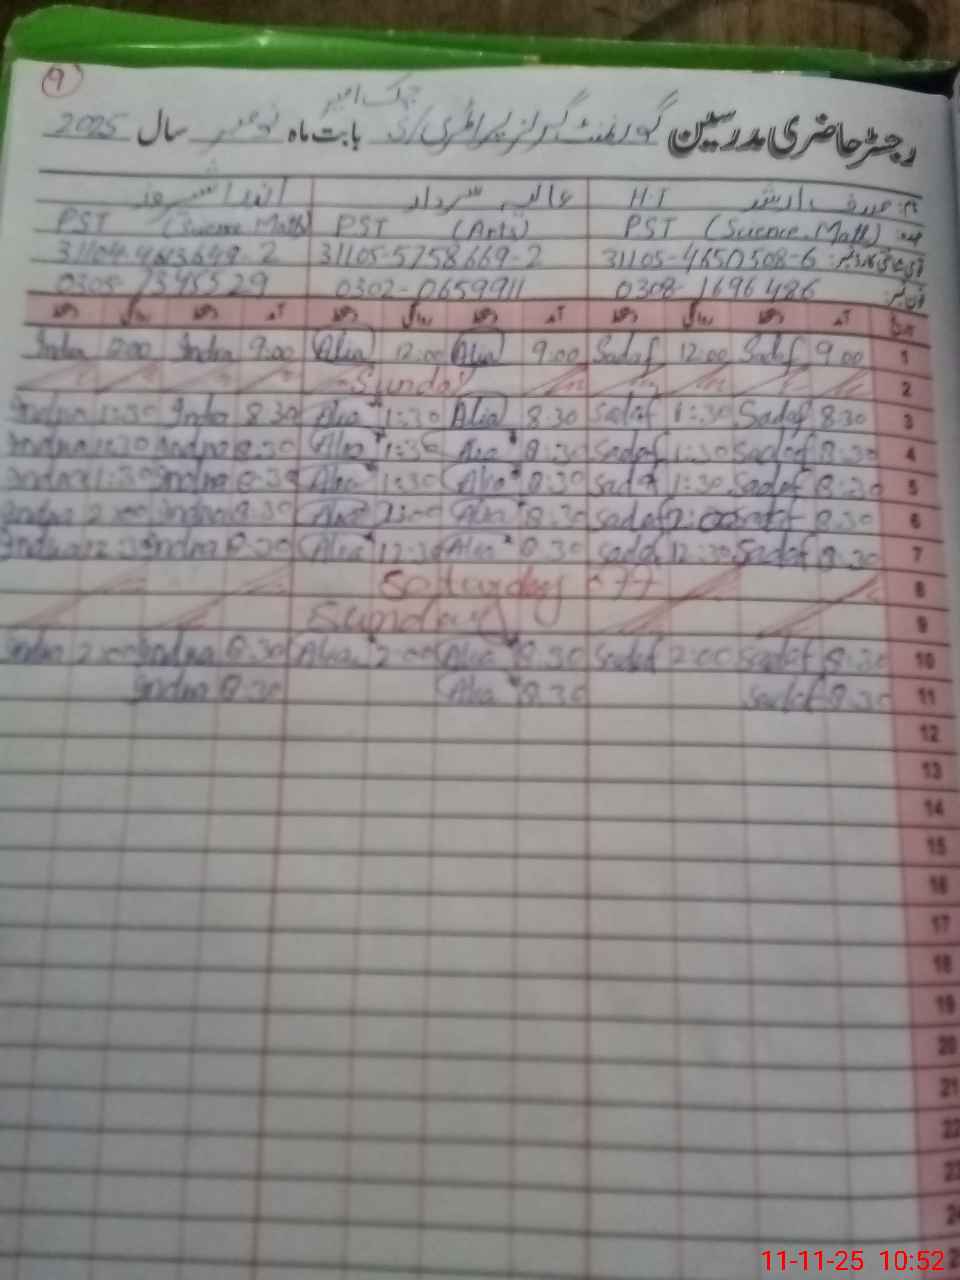 9
رجسٹر حاضری مدرسین گورنمنٹ گرلز پرائمری بابت ماہ نومبر سال 2025
نام: صدف ارشد H.T عالیہ سردار
عہدہ PST (Science.Math) PST (Arts) PST (Science.Math)
31105-4650508-6 31105-5758669-2 31104-4663649-2
0308-1696486 0302-0659911 0305-7345529
تاریخ آمد دستخط روانگی دستخط آمد دستخط روانگی دستخط آمد دستخط روانگی دستخط
1 9.00 Sadaf 12:00 Sadaf 9:00 Alia 12:00 Alia 9:00 Indra 12:00 Indra
2 Sunday
3 8:30 Sadaf 1:30 Sadaf 8:30 Alia 1:30 Alia 8.30 Indra 1:30 Indra
4 8:30 Sadaf 1:30 Sadaf 8:30 Alia 1:30 Alia 8:30 Indra 1:30 Indra
5 8:30 Sadaf 1:30 Sadaf 8:30 Alia 1:30 Alia 8:30 Indra 1:30 Indra
6 8.30 Sadaf 2:00 Sadaf 8.30 Alia 2:00 Alia 8.30 Indra 2:00 Indra
7 8:30 Sadaf 12:30 Sadaf 8.30 Alia 12:30 Alia 8.30 Indra 12:30 Indra
8 Saturday
9 Sunday
10 8:30 Sadaf 2:00 Sadaf 8:30 Alia 2:00 Alia 8.30 Indra 2:00 Indra
11 8.30 Sadaf 8.30 Alia 8.30 Indra
12
13
14
15
16
17
18
19
20
21
22
23
24
11-11-25 10:52